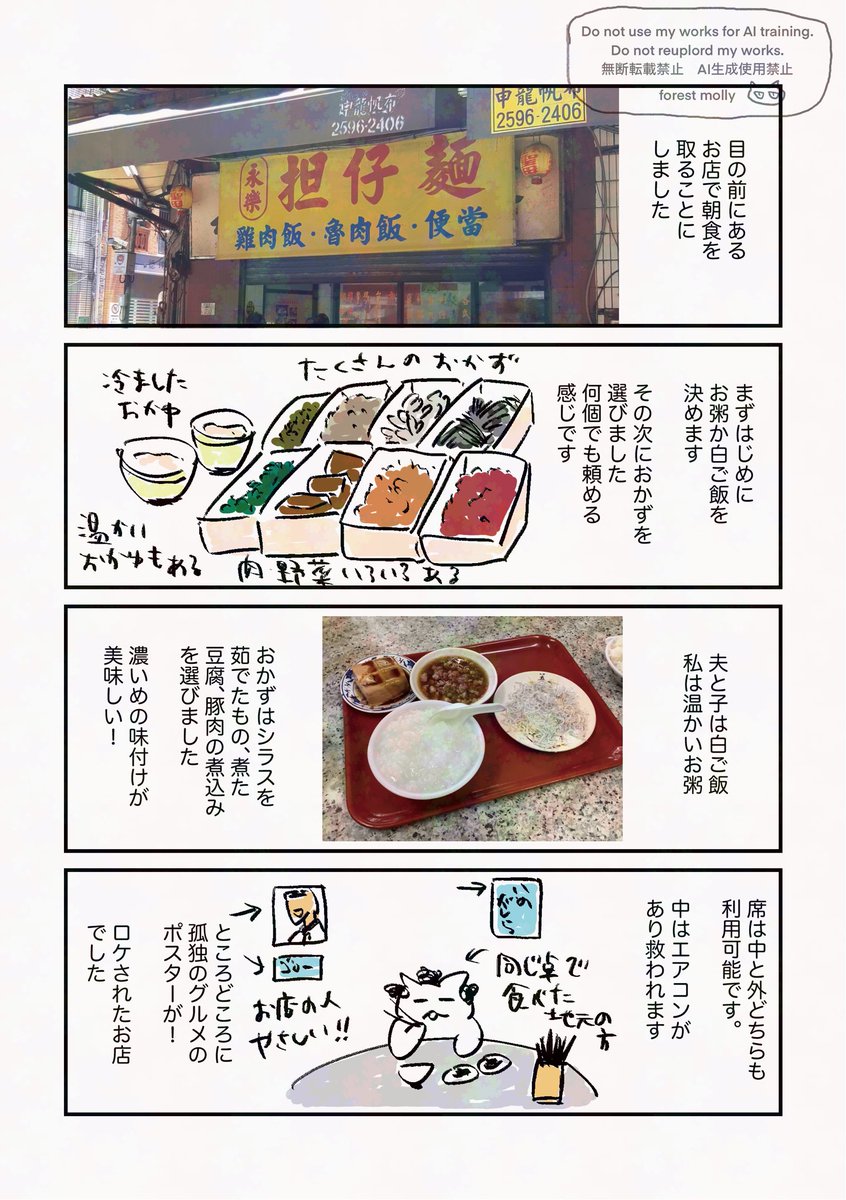 Do not use my works for AI training.
Do not reuplord my works.
無断転載禁止　AI生成使用禁止
forest molly
目の前にある
お店で朝食を
取ることに
しました
申龍帆布
2596-2406
申龍帆布
2596-2406
永樂
担仔麵
雞肉飯・魯肉飯・便當
まずはじめに
お粥か白ご飯を
決めます
その次におかずを
選びました
何個でも頼める
感じです
たくさんのおかず
冷ました
おかゆ
温かい
おかゆもある
肉野菜いろいろある
夫と子は白ご飯
私は温かいお粥
おかずはシラスを
茹でたもの、煮た
豆腐、豚肉の煮込み
を選びました
濃いめの味付けが
美味しい！
席は中と外どちらも
利用可能です。
中はエアコンが
あり救われます
同じ卓で
食べた
地元の方
お店の人
やさしい!!
ところどころに
孤独のグルメの
ポスターが！
ロケされたお店
でした